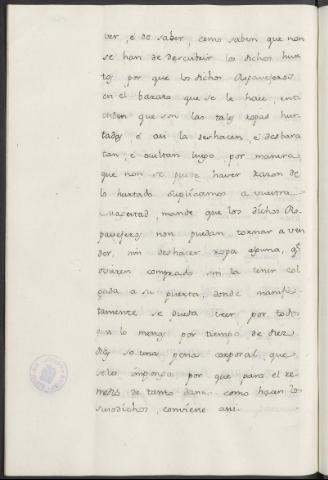 ver, é de saber, como saben que non
se han de descubrir los dichos hur
tos, por que los dichos Ropavejeros
en el barato que se le hace, enti
enden que son las tales ropas hur
tadas, é asi la deshacen, é desbara
tan, é ocultan luego, por manera
que non se puede haver razon de
lo hurtado suplicamos a vuestra
Magestad, mande que los dichos Ro
pavejeros non puedan tornar a ven
der, nin deshacer ropa alguna, q.e
ovieren comprado sin la tener col
gada a su puerta, donde manifies
tamente se pueda veer por todos
a lo menos por tiempo de diez
dias so una pena corporal, que
seles imponga, por que para el re
medio de tanto dano como hacen los
susodichos, conviene asi